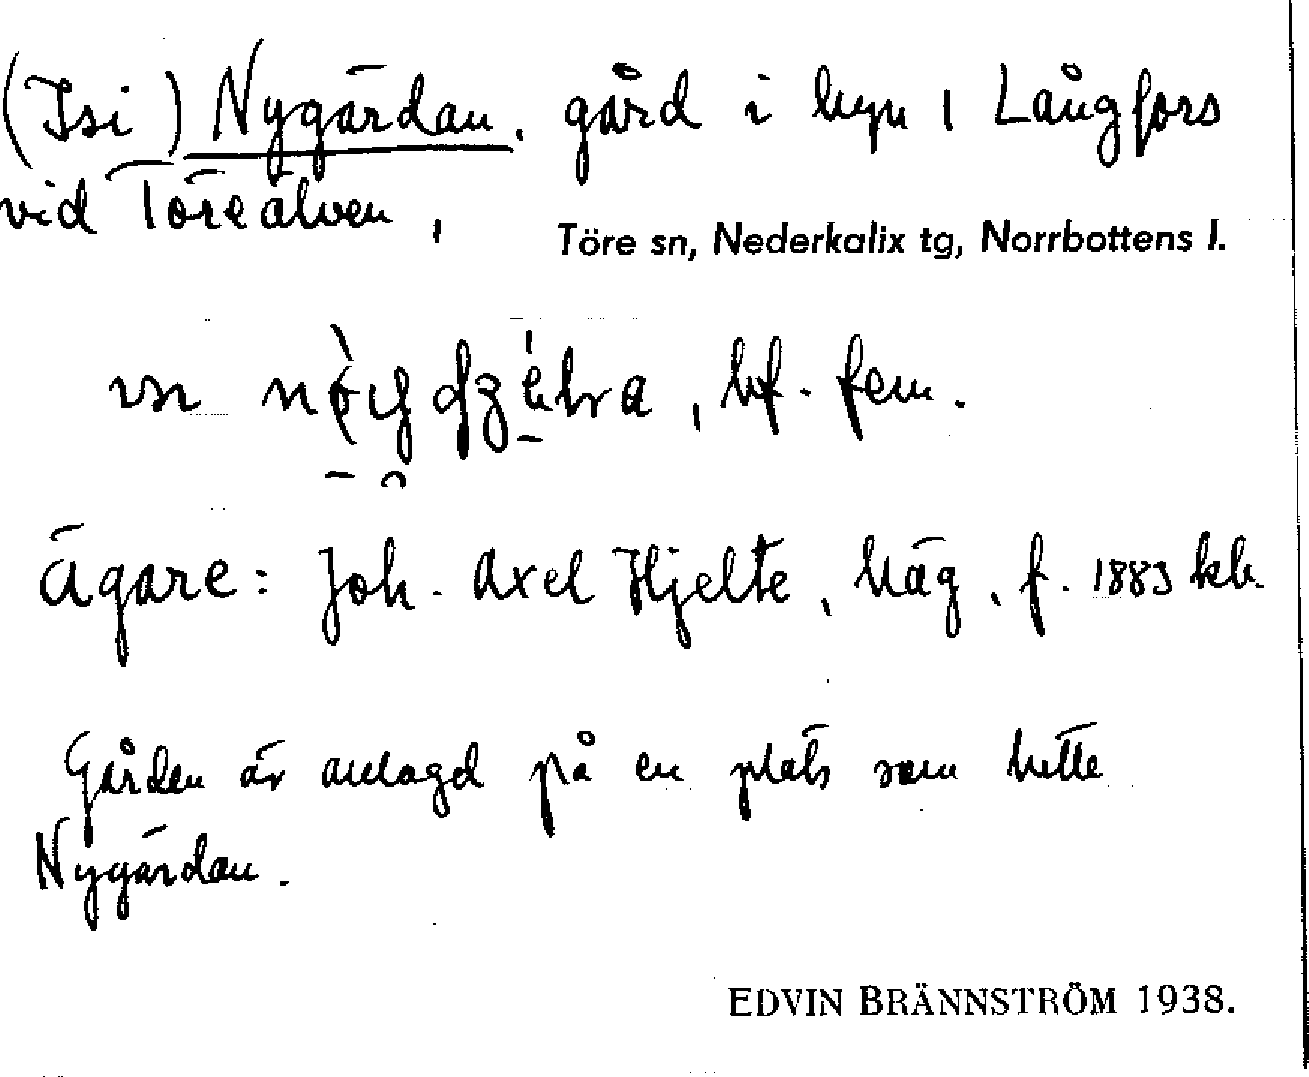 (Isi) Nygärdan. gård i byn i Långfors
vid Töreälven,
Töre sn, Nederkalix tg, Norrbottens l.
bf. fem.
Ägare: Joh. Axel Hjelte, häg, f. 1883 kb.
Gården är anlagd på en plats som hette
Nygärdan.
EDVIN BRÄNNSTRÖM 1938.